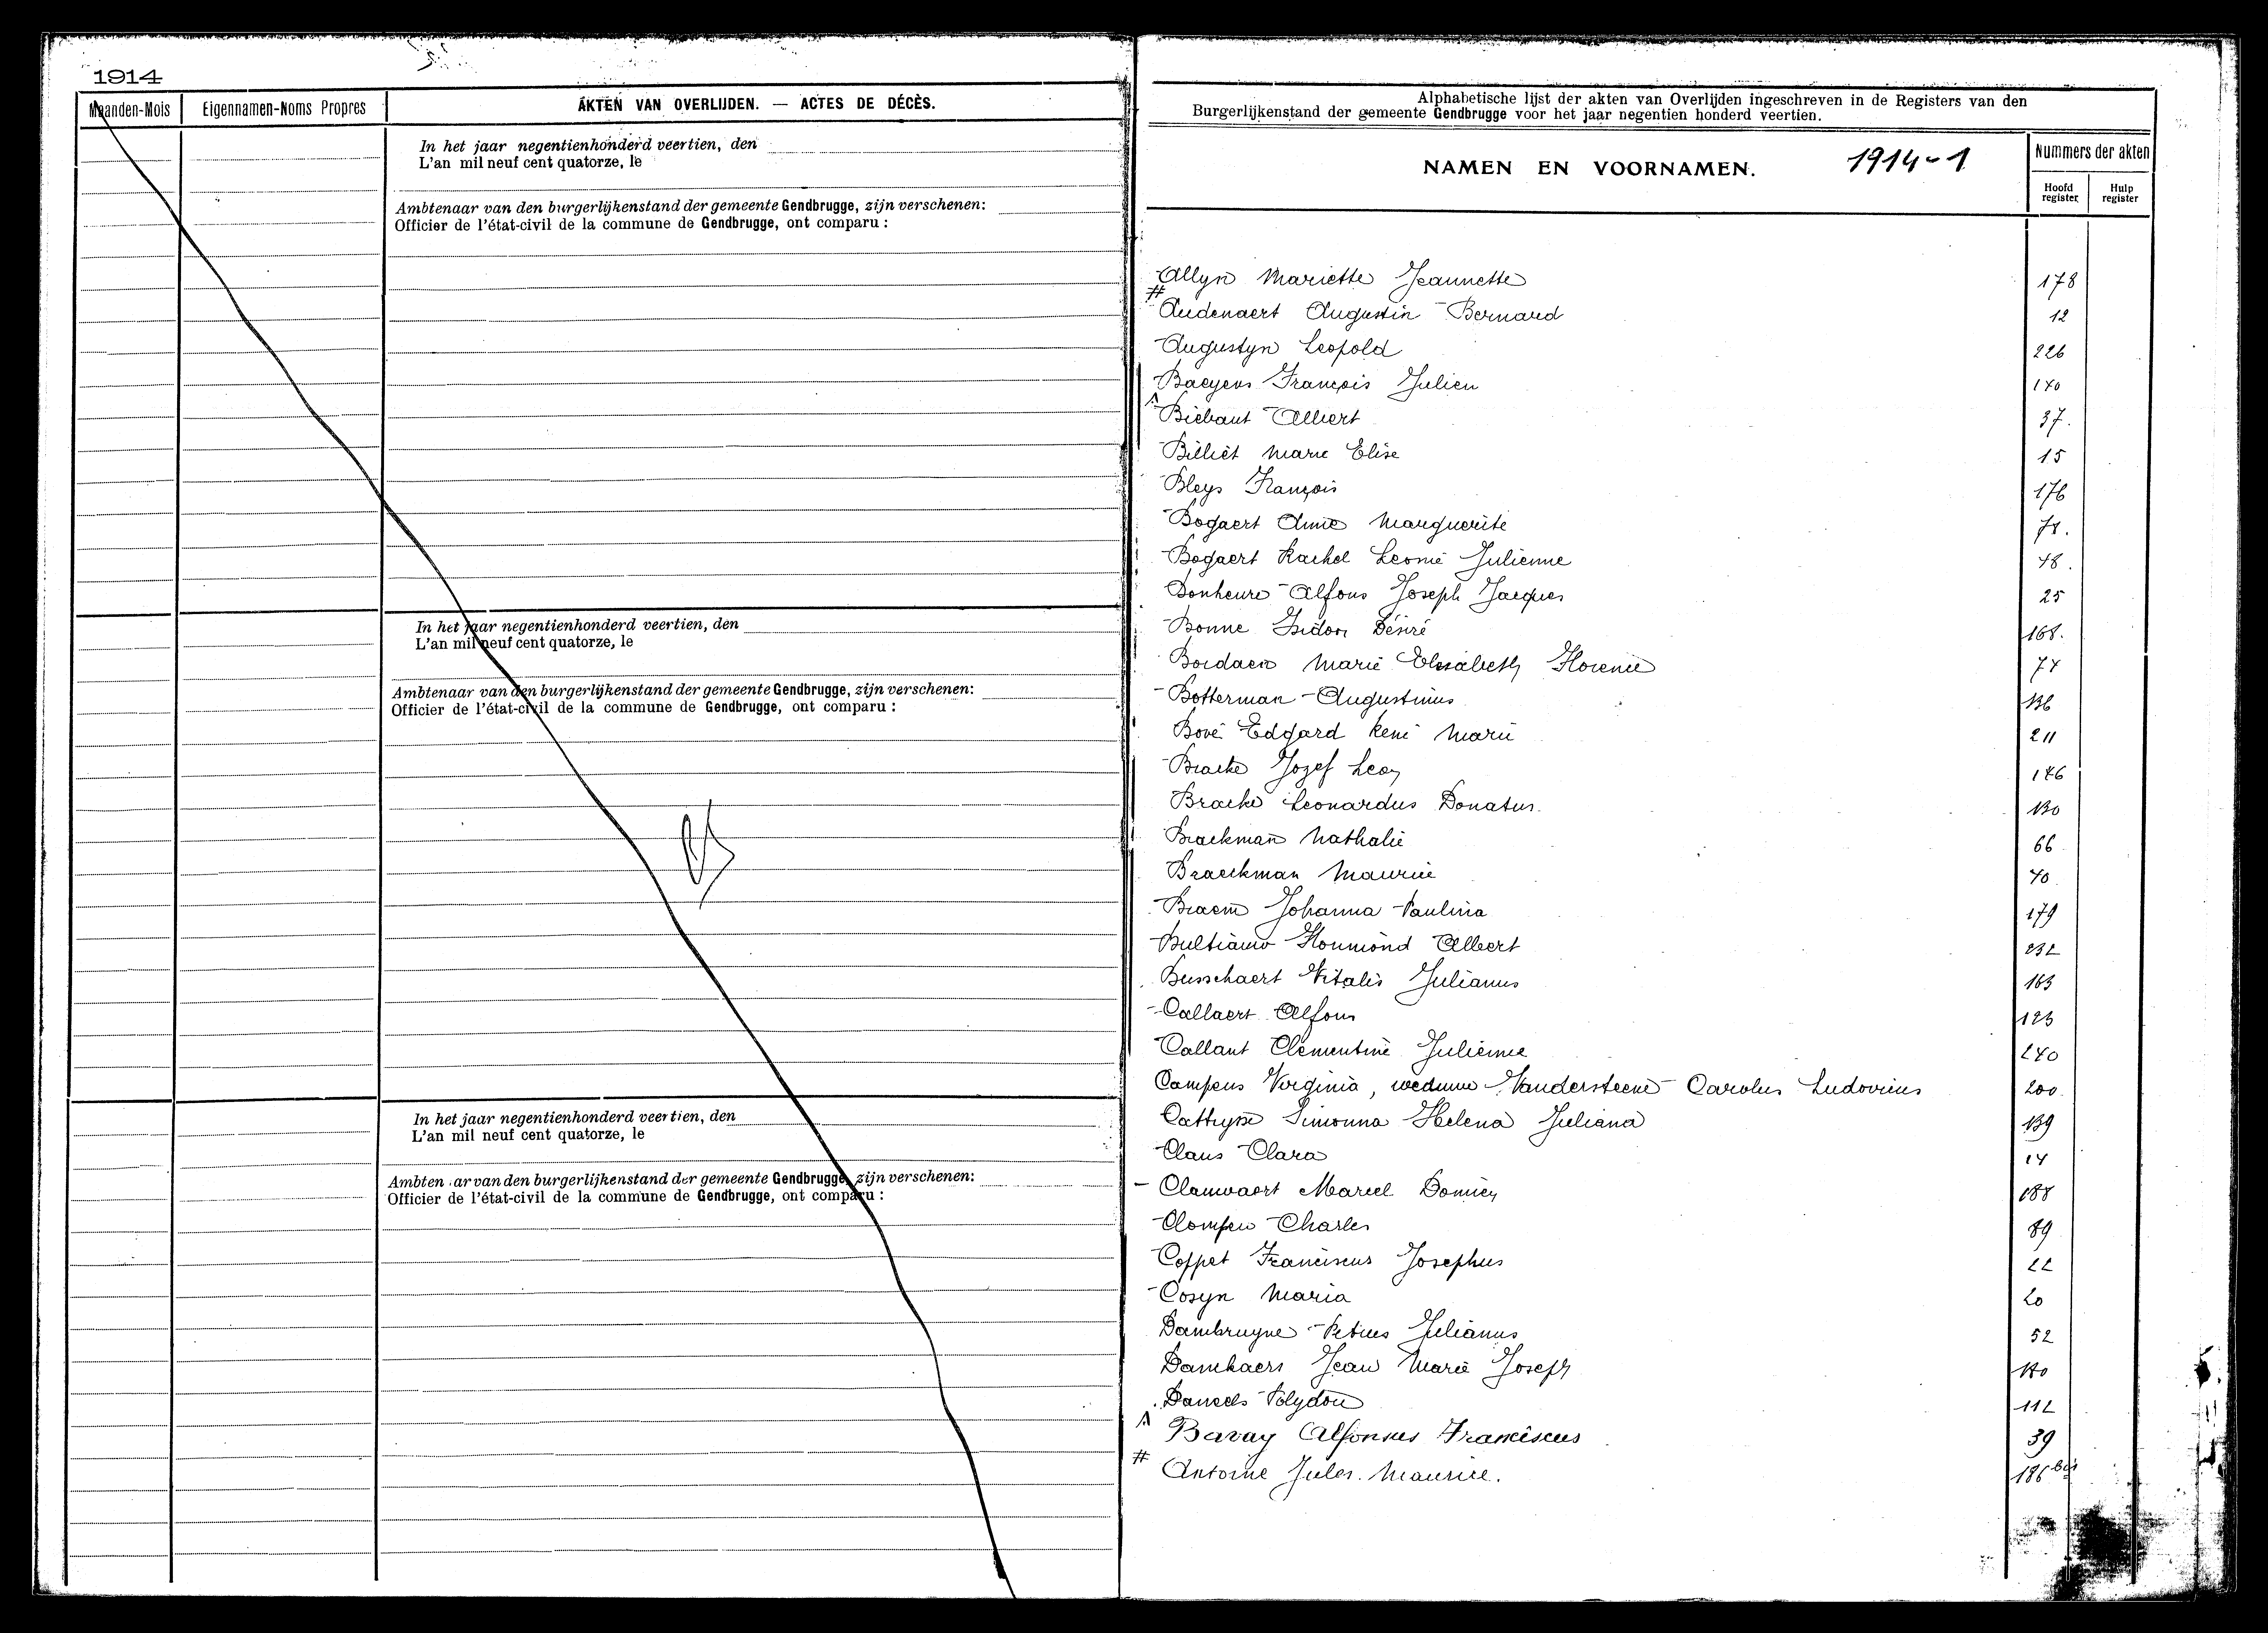 1914
Maanden-Mois Eigennamen-Noms Propres AKTEN VAN OVERLIJDEN. — ACTES DE DÉCÈS.
In het jaar negentienhonderd veertien, den
L'an mil neuf cent quatorze, le
Ambtenaar van den burgerlijkenstand der gemeente Gendbrugge, zijn verschenen:
Officier de l'état-civil de la commune de Gendbrugge, ont comparu :
In het jaar negentienhonderd veertien, den
L'an mil neuf cent quatorze, le
Ambtenaar van den burgerlijkenstand der gemeente Gendbrugge, zijn verschenen:
Officier de l'état-civil de la commune de Gendbrugge, ont comparu :
In het jaar negentienhonderd veertien, den
L'an mil neuf cent quatorze, le
Ambten ar van den burgerlijkenstand der gemeente Gendbrugge, zijn verschenen:
Officier de l'état-civil de la commune de Gendbrugge, ont comparu :
Alphabetische lijst der akten van Overlijden ingeschreven in de Registers van den
Burgerlijkenstand der gemeente Gendbrugge voor het jaar negentien honderd veertien.
NAMEN EN VOORNAMEN. 1914-1 Nummers der akten
Hoofd register Hulp register
Allyn Mariette Jeannette 178
# Audenaert Augustin Bernard 12
Augustyn Leopold 226
Baeyens François Julien 140
Biebaut Albert 37.
Billiet Marie Elise 15
Bleys François 176
Bogaert Anne Marguerite
Bogaert Rachel Leonie Julienne 48.
Bonheure Alfons Joseph Jacques 25
Bonne Isidoor Désiré 168.
Marie Elisabeth Florence 74
Botterman Augustinus 136
Bové Edgard René Marie 211
Bracke Jozef Leon 146
Bracke Leonardus Donatus 130
Brackman Nathalie 66
Braeckman Maurice 40
Braem Johanna Paulina 179
Albert 232
Busschaert Vitalis Julianus 163
Callaert Alfons 123
Callant Clementine Julienne 240
Campens Virginia, weduwe Vandersteene Carolus Ludovicus 200.
Cattrysse Simonna Helena Juliana 139
Claus Clara 14
Marcel 188
Charles 89
Coppet Franciscus Josephus 22
Cosyn Maria 20
Dambruyne Petrus Julianus 52
Jean Marie Joseph 110
Daneels Polydore 112
Bavay Alfonsus Franciscus 39
# Antoine Jules. Maurice. 186 bis